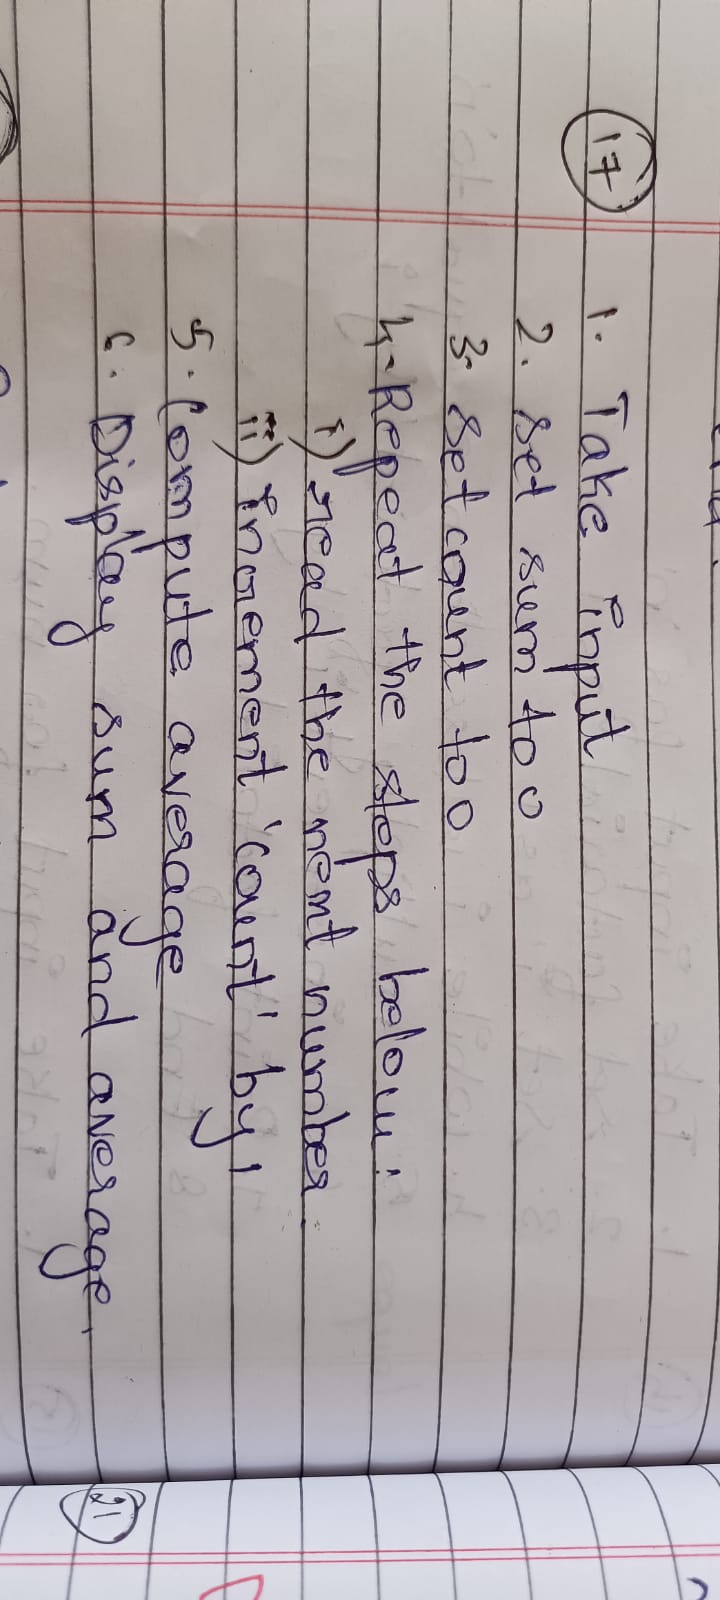 17
1. Take input
2. Set sum to 0
3. Set count to 0
4. Repeat the steps below:
i) read the next number
ii) increment 'count' by 1
5. Compute average
6. Display sum and average.
21